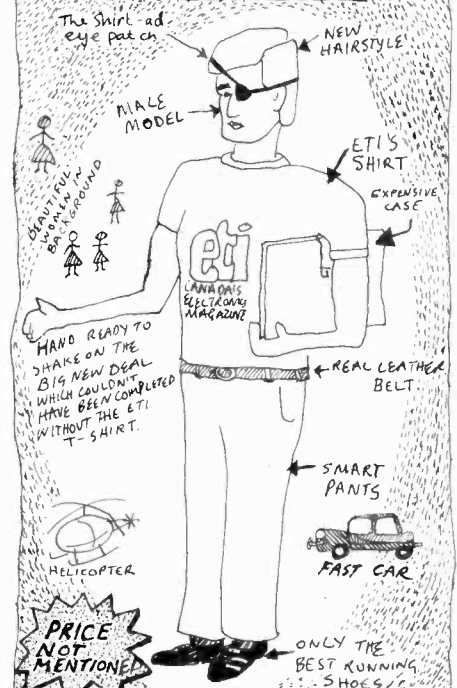 The Shirt-ad
eye patch
NEW
HAIRSTYLE
MALE
MODEL
ETI'S
SHIRT
EXPENSIVE
CASE
BEAUTIFUL
WOMEN IN
BACKGROUND
eti
CANADA'S
ELECTRONIC
MAGAZINE
HAND READY TO
SHAKE ON THE
BIG NEW DEAL
WHICH COULDN'T
HAVE BEEN COMPLETED
WITHOUT THE ETI
T-SHIRT.
REAL LEATHER
BELT.
SMART
PANTS
HELICOPTER
FAST CAR
PRICE
NOT
MENTIONED
ONLY THE
BEST RUNNING
SHOES